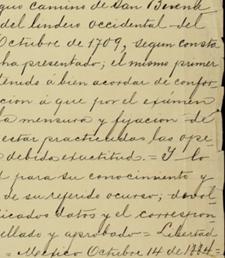 guo camino de San
del lindero occidental del
Octubre de 1709, segun consta
ha presentado; el mismo primer
tenido á bien acordar de confor
cion á que por el exámen
la mensura y fijacion de
estar practicadas las ope
debida esactitud. = Y lo
para su conocimiento y
de su referido ocurso; devol
icados datos y el correspon
ellado y aprobado = Libertad
= Mexico Octubre 14 de 1884 =